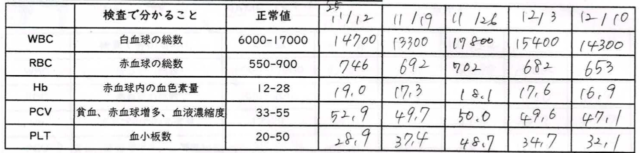 検査で分かること 正常値 25 11/12 11/19 11/26 12/3 12/10
WBC 白血球の総数 6000-17000 14700 13300 17800 15400 14300
RBC 赤血球の総数 550-900 746 692 702 682 653
Hb 赤血球内の血色素量 12-28 19.0 17.3 18.1 17.6 16.9
PCV 貧血、赤血球増多、血液濃縮度 33-55 52.9 49.7 50.0 49.6 47.1
PLT 血小板数 20-50 28.9 37.4 48.7 34.7 32.1